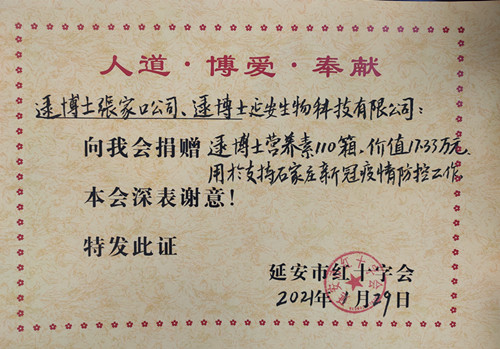 人道·博爱·奉献
逯博士張家口公司、逯博士延安生物科技有限公司:
向我会捐赠 逯博士营养素110箱.价值17.33万元.
用於支持石家庄新冠疫情防控工作.
本会深表谢意!
特发此证
延安市红十字会
2021年1月29日